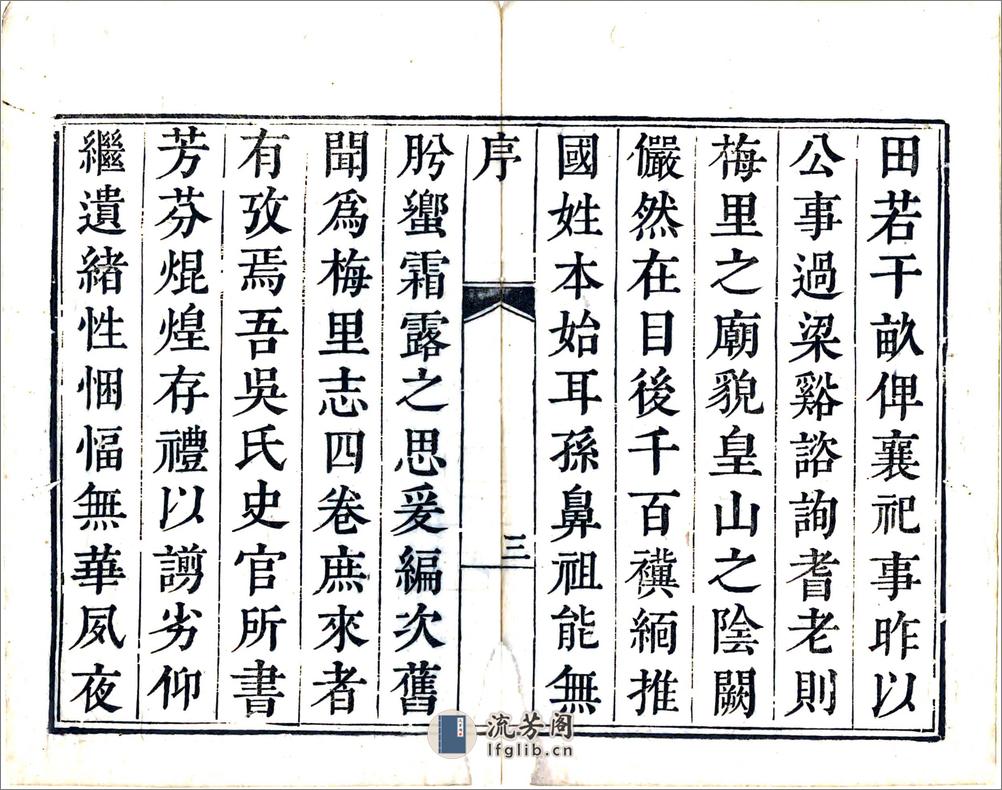 田若干畝俾襄祀事昨以
公事過梁谿諮詢耆老則
梅里之廟貌皇山之陰闕
儼然在目後千百禩緬推
國姓本始耳孫鼻祖能無
序
三
肹蠁霜露之思爰編次舊
聞爲梅里志四卷庶來者
有攷焉吾吳氏史官所書
芳芬焜煌存禮以譾劣仰
繼遺緒性悃愊無華夙夜
流芳阁
lfglib.cn